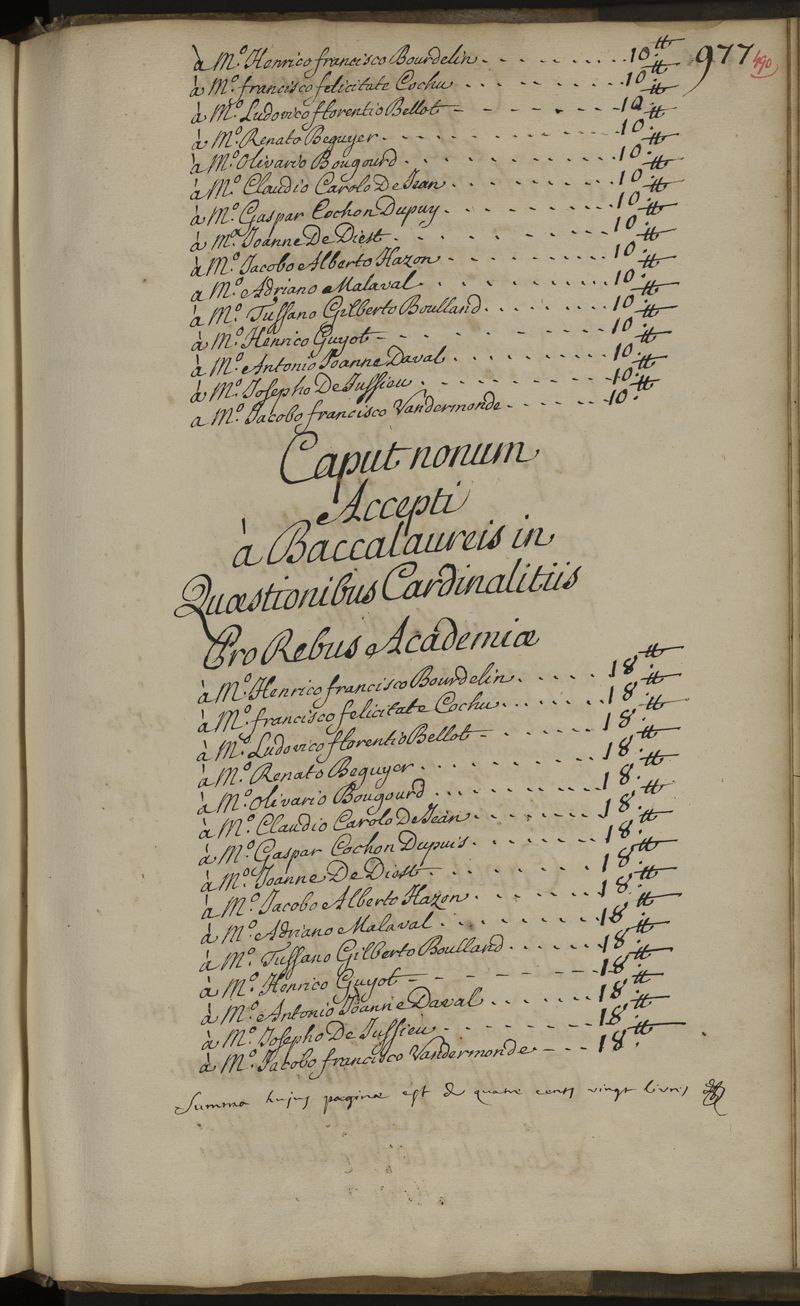 977 490
à M.º Henrico francisco Bourdelin 10.tt
à M.º francisco felicitate Cochu 10.tt
à M.º Ludovico florentio Bellot 10.tt
à M.º Renato Beguyer 10.tt
à M.º Olivario Bougourd 10.tt
à M.º Claudio Carolo De Jean 10.tt
à M.º Gaspar Cochon Dupuy 10.tt
à M.º Joanne De Diest 10.tt
à M.º Jacobo Alberto Hazon 10.tt
a M.º Adriano Malaval 10.tt
à M.º Tussano Gilberto Boulland 10.tt
à M.º Henrico Guyot 10.tt
à M.º Antonio Joanne Daval 10.tt
à M.º Josepho De Jussieu 10.tt
a M.º Jacobo francisco Vandermonde 10.tt
Caput nonum
Accepti
à Baccalaureis in
Quæstionibus Cardinalitiis
Pro Rebus Academiæ
à M.º Henrico francisco Bourdelin 18.tt
à M.º francisco felicitate Cochu 18.tt
à M.º Ludovico florentio Bellot 18.tt
à M.º Renato Beguyer 18.tt
à M.º Olivario Bougourd 18.tt
à M.º Claudio Carolo De Jean 18.tt
à M.º Gaspar Cochon Dupuis 18.tt
à M.º Joanne De Diest 18.tt
à M.º Jacobo Alberto Hazon 18.tt
à M.º Adriano Malaval 18.tt
à M.º Tussano Gilberto Boulland 18.tt
à M.º Henrico Guyot 18.tt
à M.º Antonio Joanne Daval 18.tt
à M.º Josepho De Jussieu 18.tt
à M.º Jacobo francisco Vandermonde 18.tt
Summa hujus paginæ est de quatre cents vingt livres